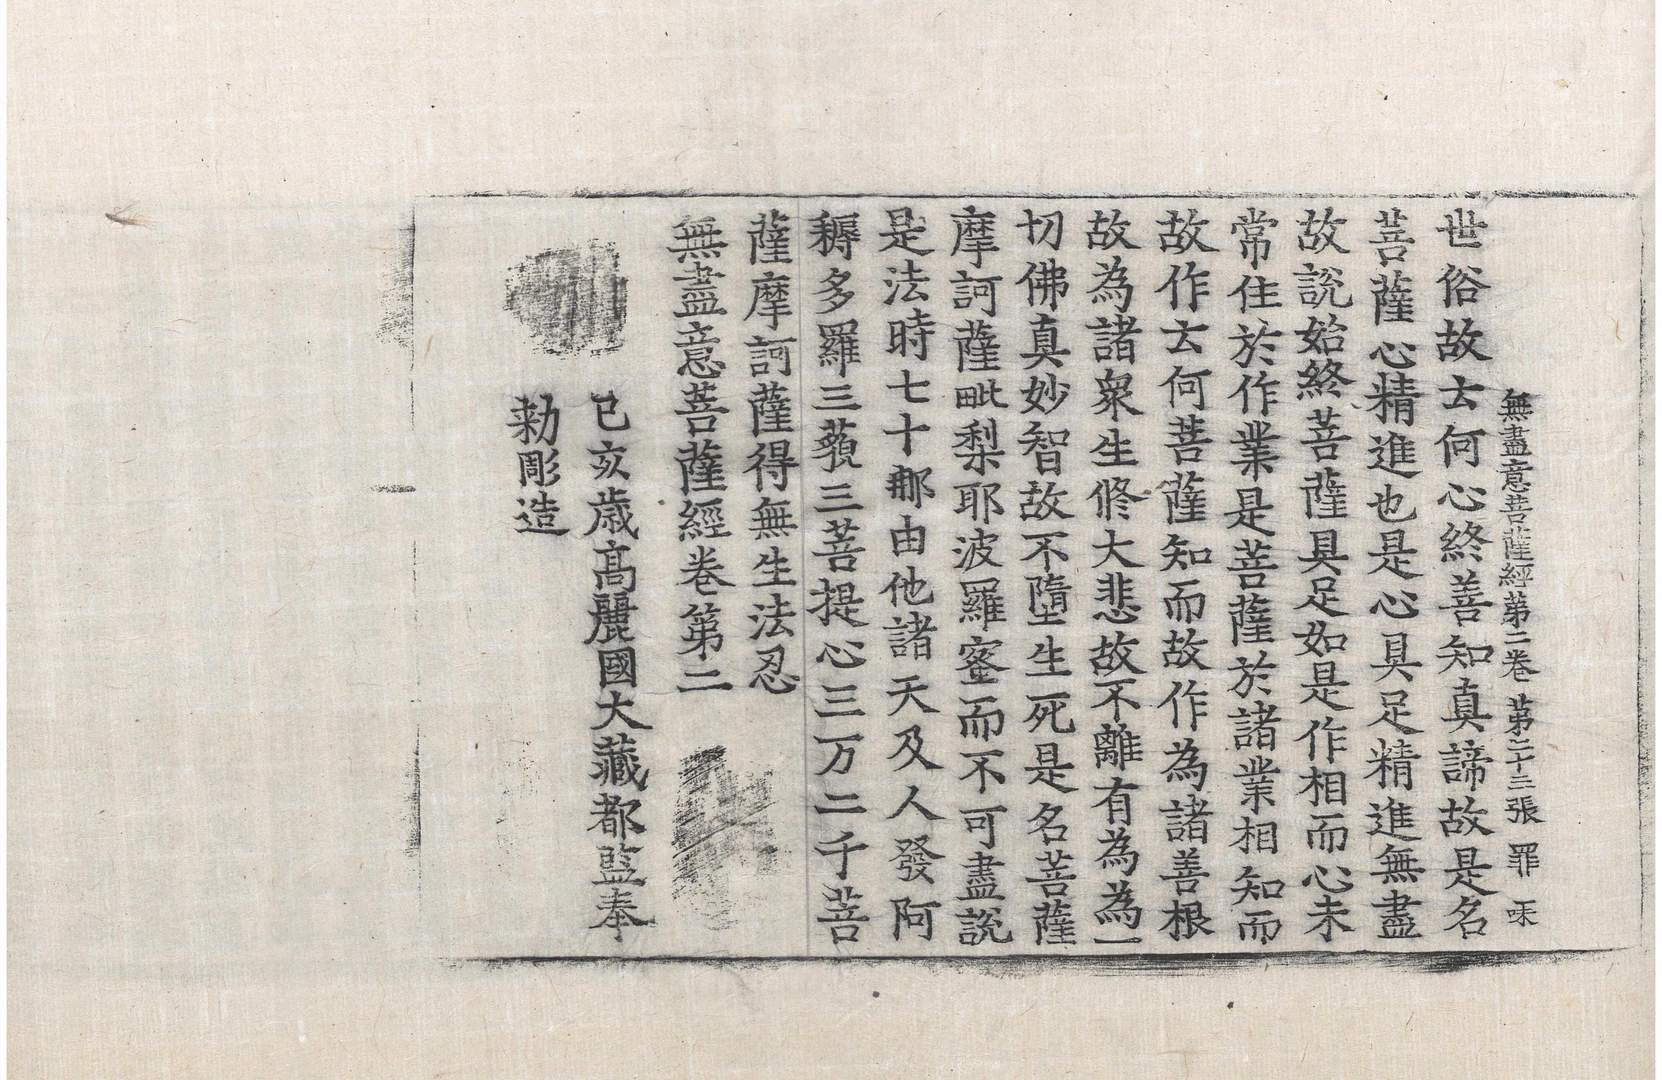 無盡意菩薩經第二卷 第二十三張 罪
世俗故去何心終善知真諦故是名
菩薩心精進也是心具足精進無盡
故說始終菩薩具足如是作相而心未
常住於作業是菩薩於諸業相知而
故作去何菩薩知而故作為諸善根
故為諸衆生修大悲故不離有為為一
切佛真妙智故不墮生死是名菩薩
摩訶薩毗梨耶波羅蜜而不可盡說
是法時七十那由他諸天及人發阿
耨多羅三藐三菩提心三万二千菩
薩摩訶薩得無生法忍
無盡意菩薩經卷第二
己亥歲高麗國大藏都監奉
勑彫造